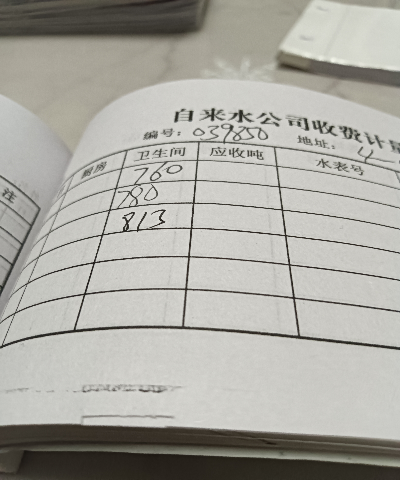 自来水公司收费计
编号: 039850 地址: 4
注 厨房 卫生间 应收吨 水表号
760
780
813